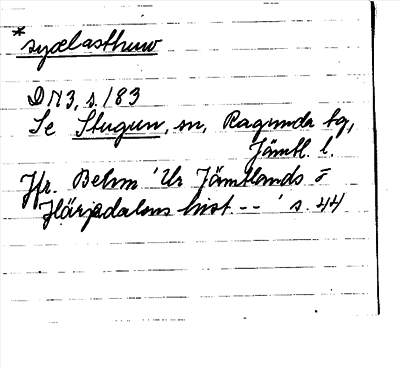 *syælasthuw
DN 3, s. 183
Se Stugun, sn, Ragunda tg,
Jämtl. l.
Jfr. Behm 'Ur Jämtlands o
Härjedalens hist -- ' s. 44